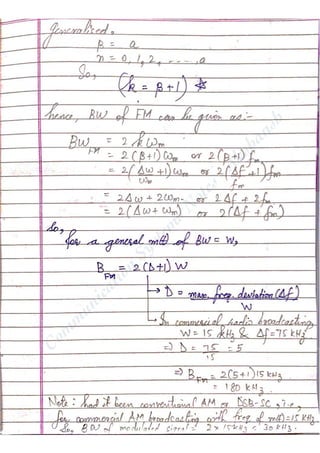 Generalised.
β = a
n = 0, 1, 2, ....., a
So,
(k = β+1)
hence, BW of FM can be given as:-
BW_FM = 2 k ω_m
= 2(β+1)ω_m or 2(β+1)f_m
= 2(Δω/ω_m +1)ω_m or 2(Δf/f_m +1)f_m
= 2Δω + 2ω_m . or 2Δf + 2f_m
= 2(Δω + ω_m) or 2(Δf + f_m)
So,
for a general m(t) of BW = W,
B_FM = 2(D+1) W
→ D = max. freq. deviation (Δf) / W
→ In commercial radio broadcasting
W = 15 kHz & Δf = 75 kHz
⇒ D = 75/15 = 5
⇒ B_FM = 2(5+1) 15 kHz
= 180 kHz.
Note: had it been conventional AM or DSB-SC, i.e,
for commercial AM broadcasting with freq of m(t) = 15 kHz
So, BW of modulated signal = 2 x 15 kHz = 30 kHz.